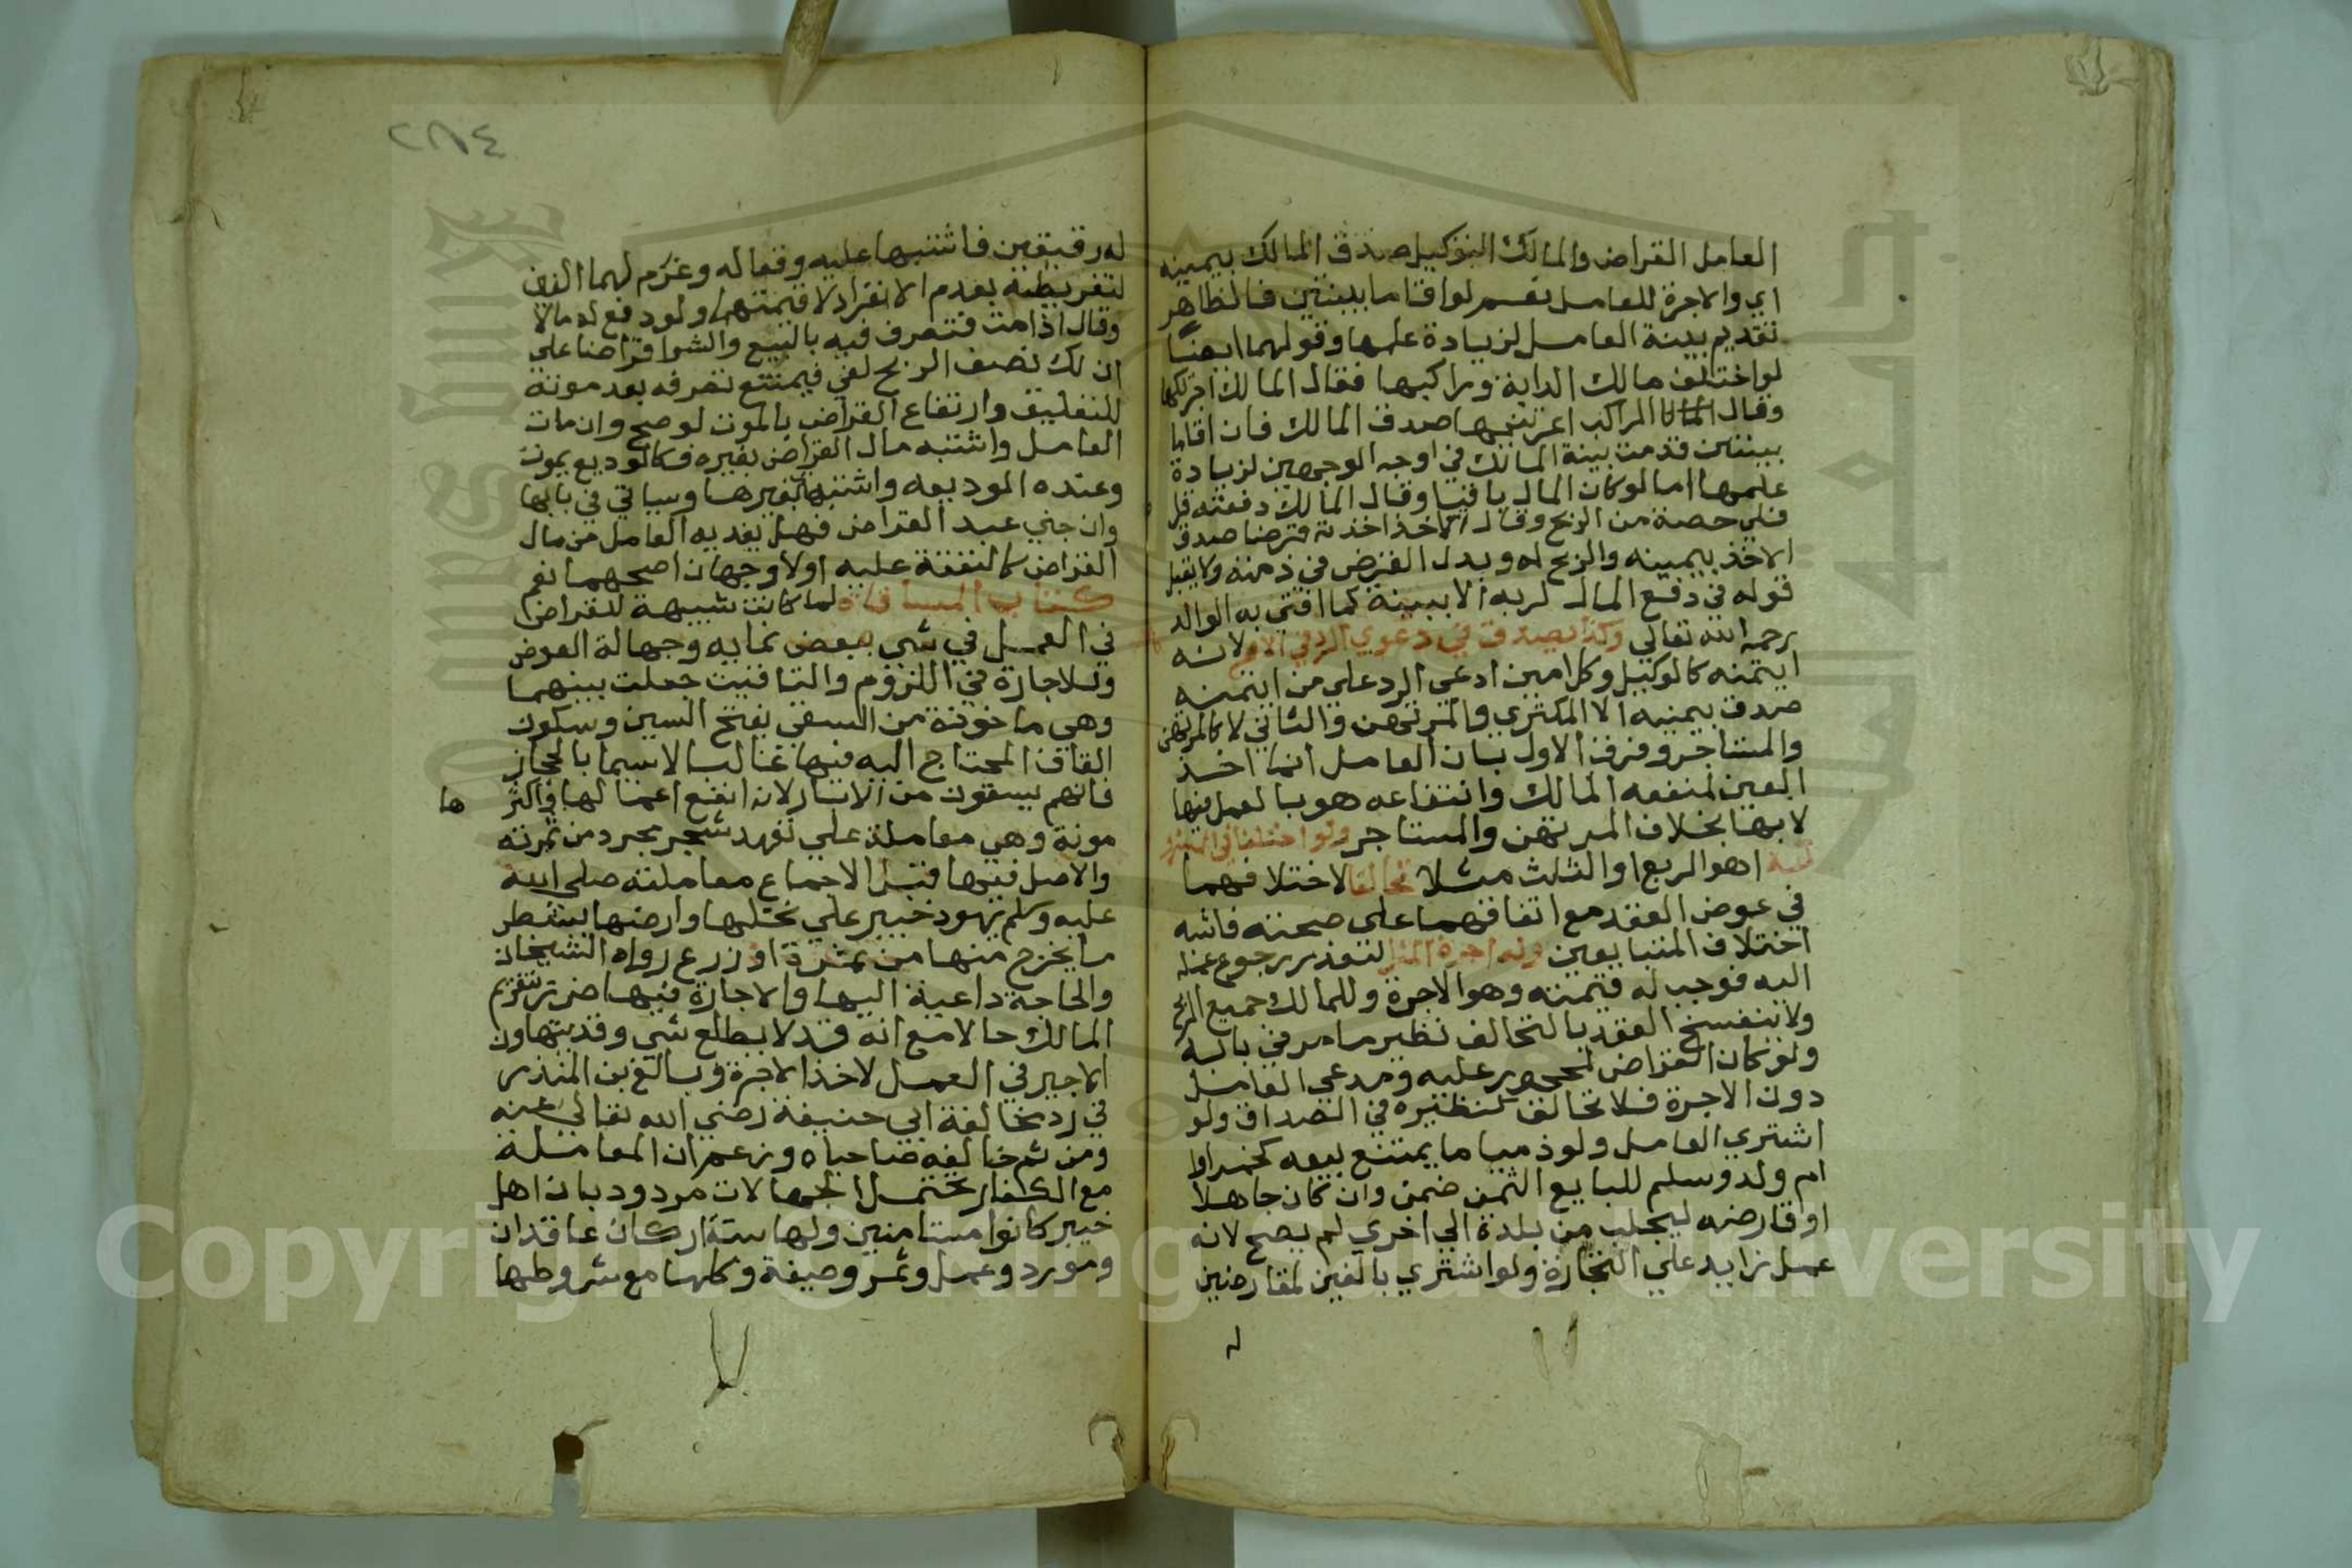 العامل القراض والمالك التوكيل صدق المالك بيمينه
اي والاجرة للعامل نعم لو اقاما بينتين فالظاهر
تقديم بينة العامل لزيادة علمها وقولهما ايضا
لو اختلف مالك الدابة وراكبها فقال المالك اجرتكها
وقال الراكب اعرتنيها صدق المالك فان اقاما
بينتين قدمت بينة المالك في اوجه الوجهين لزيادة
علمها اما لو كان المال باقيا وقال المالك دفعته قل
فلي حصة من الربح وقال الاخذ اخذته قرضا صدق
الاخذ بيمينه والربح له وبدل القرض في ذمته ولا يقبل
قوله في دفع المال لربه الا ببينة كما افتي به الوالد
رحمه الله تعالي وكذا يصدق في دعوي الرد في الاصح لانه
ايتمنه كالوكيل وكل امين ادعي الرد علي من ايتمنه
صدق بيمينه الا المكتري والمرتهن والثاني لا كالمرتهن
والمستاجر وفرق الاول بان العامل انما اخذ
العين لمنفعه المالك وانتفاعه هو بالعمل فيها
لا بها بخلاف المرتهن والمستاجر ولو اختلفا في المشروط
له اهو الربع او الثلث مثلا تحالفا لاختلافهما
في عوض العقد مع اتفاقهما علي صحته فاشبه
اختلاف المتبايعين وله اجرة المثل لتعذر رجوع عمله
اليه فوجب له قيمته وهو الاجرة وللمالك جميع الربح
ولا ينفسخ العقد بالتحالف نظير ما مر في بابه
ولو كان القراض لمحجور عليه ومدعي العامل
دون الاجرة فلا تحالف كنظيره في الصداق ولو
اشتري العامل ولو ذميا ما يمتنع بيعه كخمر او
ام ولد وسلم للبايع الثمن ضمن وان كان جاهلا
او قارضه ليجلب من بلدة الي اخري لم يصح لانه
عمل زايد علي التجارة ولو اشتري بالفين لمقارضين
له
٢٨٤
له رقيقين فاشتبها عليه وقعا له وغرم لهما الفين
لتفريطه بعدم الانفراد لا قيمتهما ولو دفع له مالا
وقال اذا مت فتصرف فيه بالبيع والشرا قراضا علي
ان لك نصف الربح لغي فيمتنع تصرفه بعد موته
للتعليق وارتفاع القراض بالموت لو صح وان مات
العامل واشتبه مال القراض بغيره فكالوديع يموت
وعنده الوديعه واشتبهت بغيرها وسياتي في بابها
وان جني عبد القراض فهل يفديه العامل من مال
القراض كالنفقة عليه اولا وجهان اصحهما نعم
كتاب المساقاة لما كانت شبيهة للقراض
في العمل في شي ببعض نمايه وجهالة العوض
وللاجارة في اللزوم والتاقيت جعلت بينهما
وهي ماخوذة من السقي بفتح السين وسكون
القاف المحتاج اليه فيها غالبا لاسيما بالحجاز
فانهم يسقون من الابار لانه انفع اعمالها واكثر ها
مونة وهي معاملة علي تعهد شجر بجزء من ثمرته
والاصل فيها قبل الاجماع معاملته صلي الله
عليه وسلم يهود خيبر علي نخلها وارضها بشطر
ما يخرج منها من ثمرة او زرع رواه الشيخان
والحاجة داعية اليها والاجارة فيها ضرر بتغريم
المالك حالا مع انه قد لا يطلع شي وقد يتهاون
الاجير في العمل لاخذ الاجرة وبالغ بن المنذر
في رد مخالفة ابي حنيفة رضي الله تعالي عنه
ومن ثم خالفه صاحباه وزعم ان المعاملة
مع الكفار تحتمل الجهالات مردود بان اهل
خيبر كانوا مستامنين ولها ستة اركان عاقدان
ومورد وعمل وثمر وصيغة وكلها مع شروطها
Copyright © King Saud University